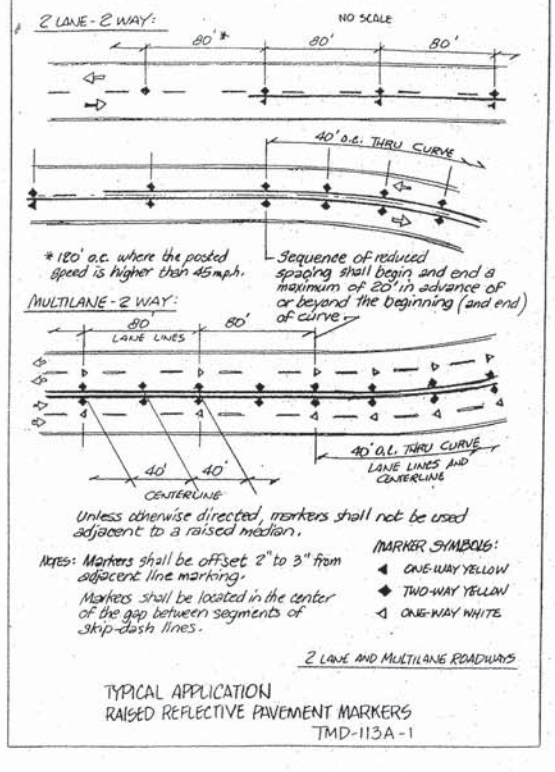 2 LANE - 2 WAY:
NO SCALE
80'*
80'
80'
40' O.C. THRU CURVE
* 120' o.c. where the posted
speed is higher than 45 m.p.h.
Sequence of reduced
spacing shall begin and end a
maximum of 20' in advance of
or beyond the beginning (and end)
of curve
MULTILANE - 2 WAY:
80'
80'
LANE LINES
40' O.C. THRU CURVE
LANE LINES AND
CENTERLINE
40'
40'
CENTERLINE
Unless otherwise directed, markers shall not be used
adjacent to a raised median.
NOTES: Markers shall be offset 2" to 3" from
adjacent line marking.
Markers shall be located in the center
of the gap between segments of
skip-dash lines.
MARKER SYMBOLS:
ONE-WAY YELLOW
TWO-WAY YELLOW
ONE-WAY WHITE
2 LANE AND MULTILANE ROADWAYS
TYPICAL APPLICATION
RAISED REFLECTIVE PAVEMENT MARKERS
TMD-113A-1